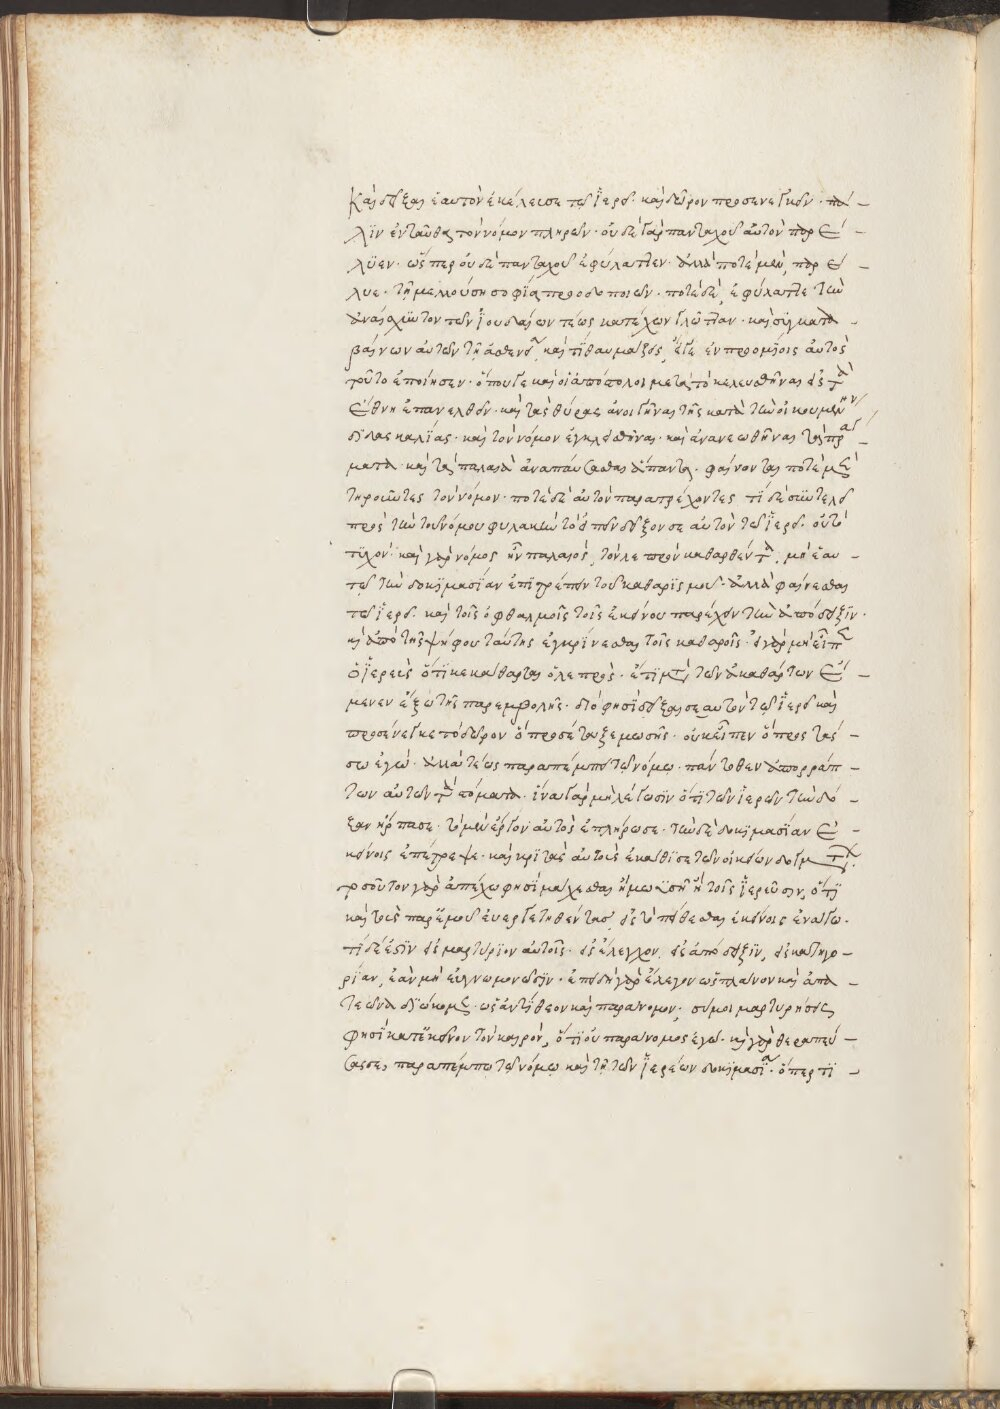 Καὶ δεῖξαι ἑαυτὸν ἐκέλευσε τῷ ἱερεῖ· καὶ δῶρον προσενεγκεῖν· πά –
λιν ἐνταῦθα τὸν νόμον πληρῶν· οὐδὲ γὰρ πανταχοῦ αὐτὸν παρέ –
λυεν· ὥσπερ οὐδὲ πανταχοῦ ἐφύλαττεν· ἀλλὰ ποτὲ μὲν, παρέ –
λυε· τῇ μελλούσῃ σοφίᾳ προοδοποιῶν· ποτὲ δὲ, ἐφύλαττε τὴν
ἀναίσχυντον τῶν ἰουδαίων τέως κατέχων γλῶτταν· καὶ συγκατα –
βαίνων αὐτῶν τῇ ἀσθενείᾳ, καὶ τί θαυμάζεις, εἴγε ἐν προοιμίοις αὐτὸς
τοῦτο ἐποίησεν· ὅπουγε καὶ οἱ ἀπόστολοι μετὰ τὸ κελευσθῆναι εἰς τὰ
ἔθνη ἐπανελθεῖν· καὶ τὰς θύρας ἀνοιγῆναι τῆς κατὰ τὴν οἰκουμένην
διδασκαλίας· καὶ τὸν νόμον ἐγκλεισθῆναι· καὶ ἀνανεωθῆναι τὰ πράγ –
ματα· καὶ τὰ παλαιὰ ἀναπαύσασθαι ἅπαντα· φαίνονται ποτὲ μὲν
τηροῦντες τὸν νόμον· ποτὲ δὲ αὐτὸν παρατρέχοντες τί δὲ συντελεῖ
πρὸς τὴν τοῦ νόμου φυλακὴν τὸ εἰπεῖν δεῖξον σεαυτὸν τῷ ἱερεῖ· οὐ τὸ
τυχόν· καὶ γὰρ νόμος ἦν παλαιός, τὸν λεπρὸν καθαρθέντα, μὴ ἑαυ –
τῷ τὴν δοκιμασίαν ἐπιτρέπειν τοῦ καθαρισμοῦ· ἀλλὰ φαίνεσθαι
τῷ ἱερεῖ· καὶ τοῖς ὀφθαλμοῖς τοῖς ἐκείνου παρέχειν τὴν ἀπόδειξιν·
κἀπὸ τῆς ψήφου ταύτης ἐγκρίνεσθαι τοῖς καθαροῖς· εἰ γὰρ μὴ εἶπεν
ὁ ἱερεὺς ὅτι κεκάθαρται ὁ λεπρός· ἔτι μετὰ τῶν ἀκαθάρτων ἔ –
μενεν ἔξω τῆς παρεμβολῆς· διό φησι δεῖξαι σεαυτὸν τῷ ἱερεῖ καὶ
προσένεγκε τὸ δῶρον ὃ προσέταξε μωσῆς· οὐκ εἶπεν ὃ προστάσ –
σω ἐγώ· ἀλλὰ τέως παραπέμπει τῷ νόμῳ· πάντοθεν ἀπορράπ –
των αὐτῶν τὰ στόματα· ἵνα γὰρ μὴ λέγωσιν ὅτι τῶν ἱερέων τὴν δό –
ξαν ἥρπασε· τὸ μὲν ἔργον αὐτὸς ἐπλήρωσε· τὴν δὲ δοκιμασίαν ἐ –
κείνοις ἐπέτρεψε· καὶ κριτὰς αὐτοὺς ἐκάθισε τῶν οἰκείων θαυμάτων·
τοσοῦτον γὰρ ἀπέχω φησὶ μάχεσθαι ἢ μωϋσῇ ἢ τοῖς ἱερεῦσιν, ὅτι
καὶ τοὺς παρ' ἐμοῦ εὐεργετηθέντας, εἰς τὸ πείθεσθαι ἐκείνοις ἐνάγω·
τί δέ ἐστιν εἰς μαρτύριον αὐτοῖς· εἰς ἔλεγχον, εἰς ἀπόδειξιν, εἰς κατηγο –
ρίαν, ἐὰν μὴ εὐγνωμονῶσιν· ἐπειδὴ γὰρ ἔλεγον ὡς πλάνον καὶ ἀπα –
τεῶνα διώκομεν· ὡς ἀντίθεον καὶ παράνομον· σύ μοι μαρτυρήσεις
φησὶ κατ' ἐκεῖνον τὸν καιρόν, ὅτι οὐ παράνομος ἐγώ· καὶ γὰρ θεραπεύ –
σας σε, παραπέμπω τῷ νόμῳ καὶ τῇ τῶν ἱερέων δοκιμασίᾳ· ὅπερ τι –